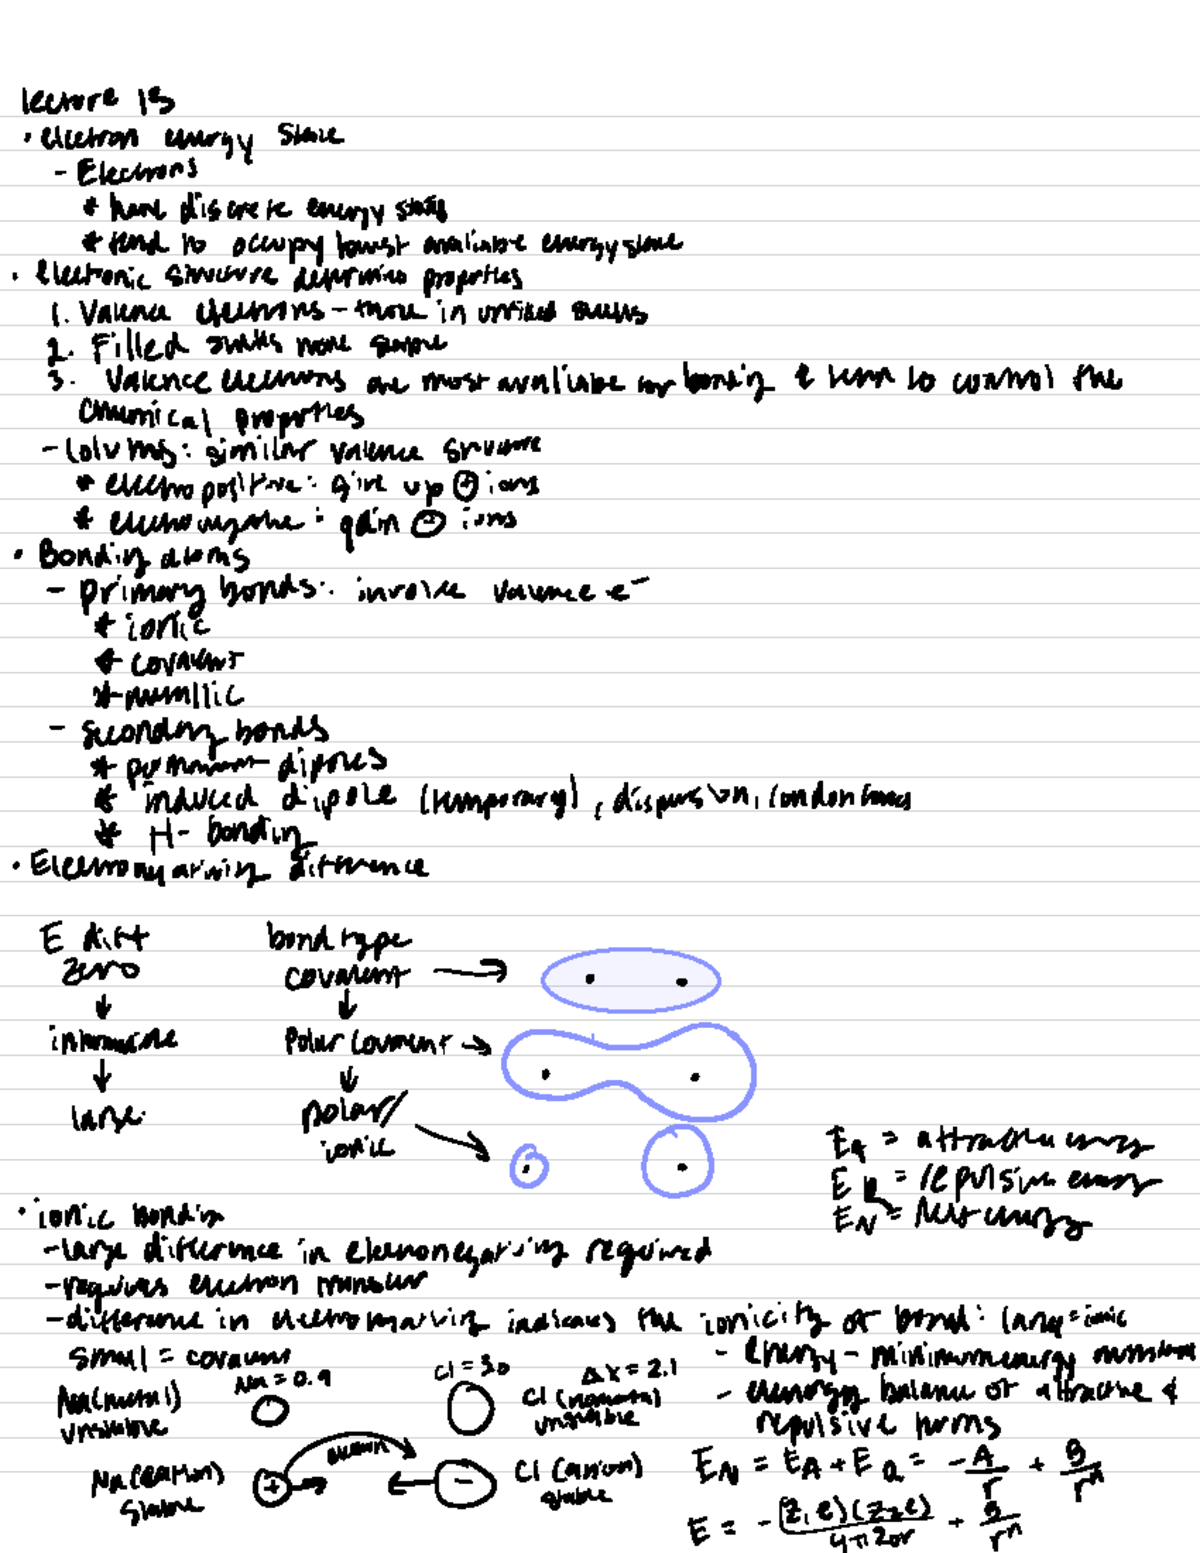 lecture 13
• electron energy state
- Electrons
* have discrete energy states
* tend to occupy lowest available energy state
• Electronic structure determines properties
1. Valence electrons - those in unfilled shells
2. Filled shells more stable
3. Valence electrons are most available for bonding & tend to control the
chemical properties
- Columns: similar valence structure
* electropositive: give up ⊕ ions
* electronegative: gain ⊖ ions
• Bonding atoms
- primary bonds: involve valence e⁻
* ionic
* covalent
* metallic
- secondary bonds
* permanent dipoles
* induced dipole (temporary), dispersion, london forces
* H-bonding
• Electronegativity difference
E diff bond type
zero covalent →
↓ ↓
intermediate Polar covalent →
↓ ↓
large polar/
ionic
E_A = attractive energy
E_R = repulsive energy
E_N = Net energy
• ionic bonding
- large difference in electronegativity required
- requires electron transfer
- difference in electronegativity indicates the ionicity of bond: large = ionic
small = covalent
- energy - minimum energy
- energy balance of attractive &
repulsive terms
Na = 0.9 Cl = 3.0 ΔX = 2.1
Na (metal) Cl (nonmetal)
unstable unstable
electron
Na (cation) + - Cl (anion)
stable stable
E_N = E_A + E_R = -A/r + B/rⁿ
E = -(z₁e)(z₂e)/4πεor + B/rⁿ